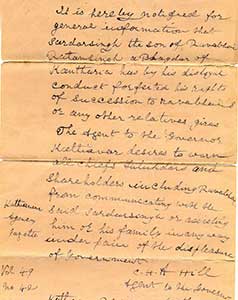 It is hereby notified for
general information that
Sardarsingh the son of Ravabhai
Ratansingh a Bhagdar of
Kantharia has by his disloyal
conduct forfeited his rights
of succession to Ravabhai
or any other relatives
The Agent to the Governor
Kathiawar desires to warn
all chiefs Talukdars and
Shareholders including Ravabhai
from communicating with the
Said Sardarsingh or assisting
him or his family in any way
under pain of the displeasure
of Government
C. H. A Hill
Agent to the Governor
Kathiawar
Agency
Gazette
Vol 49
No 42